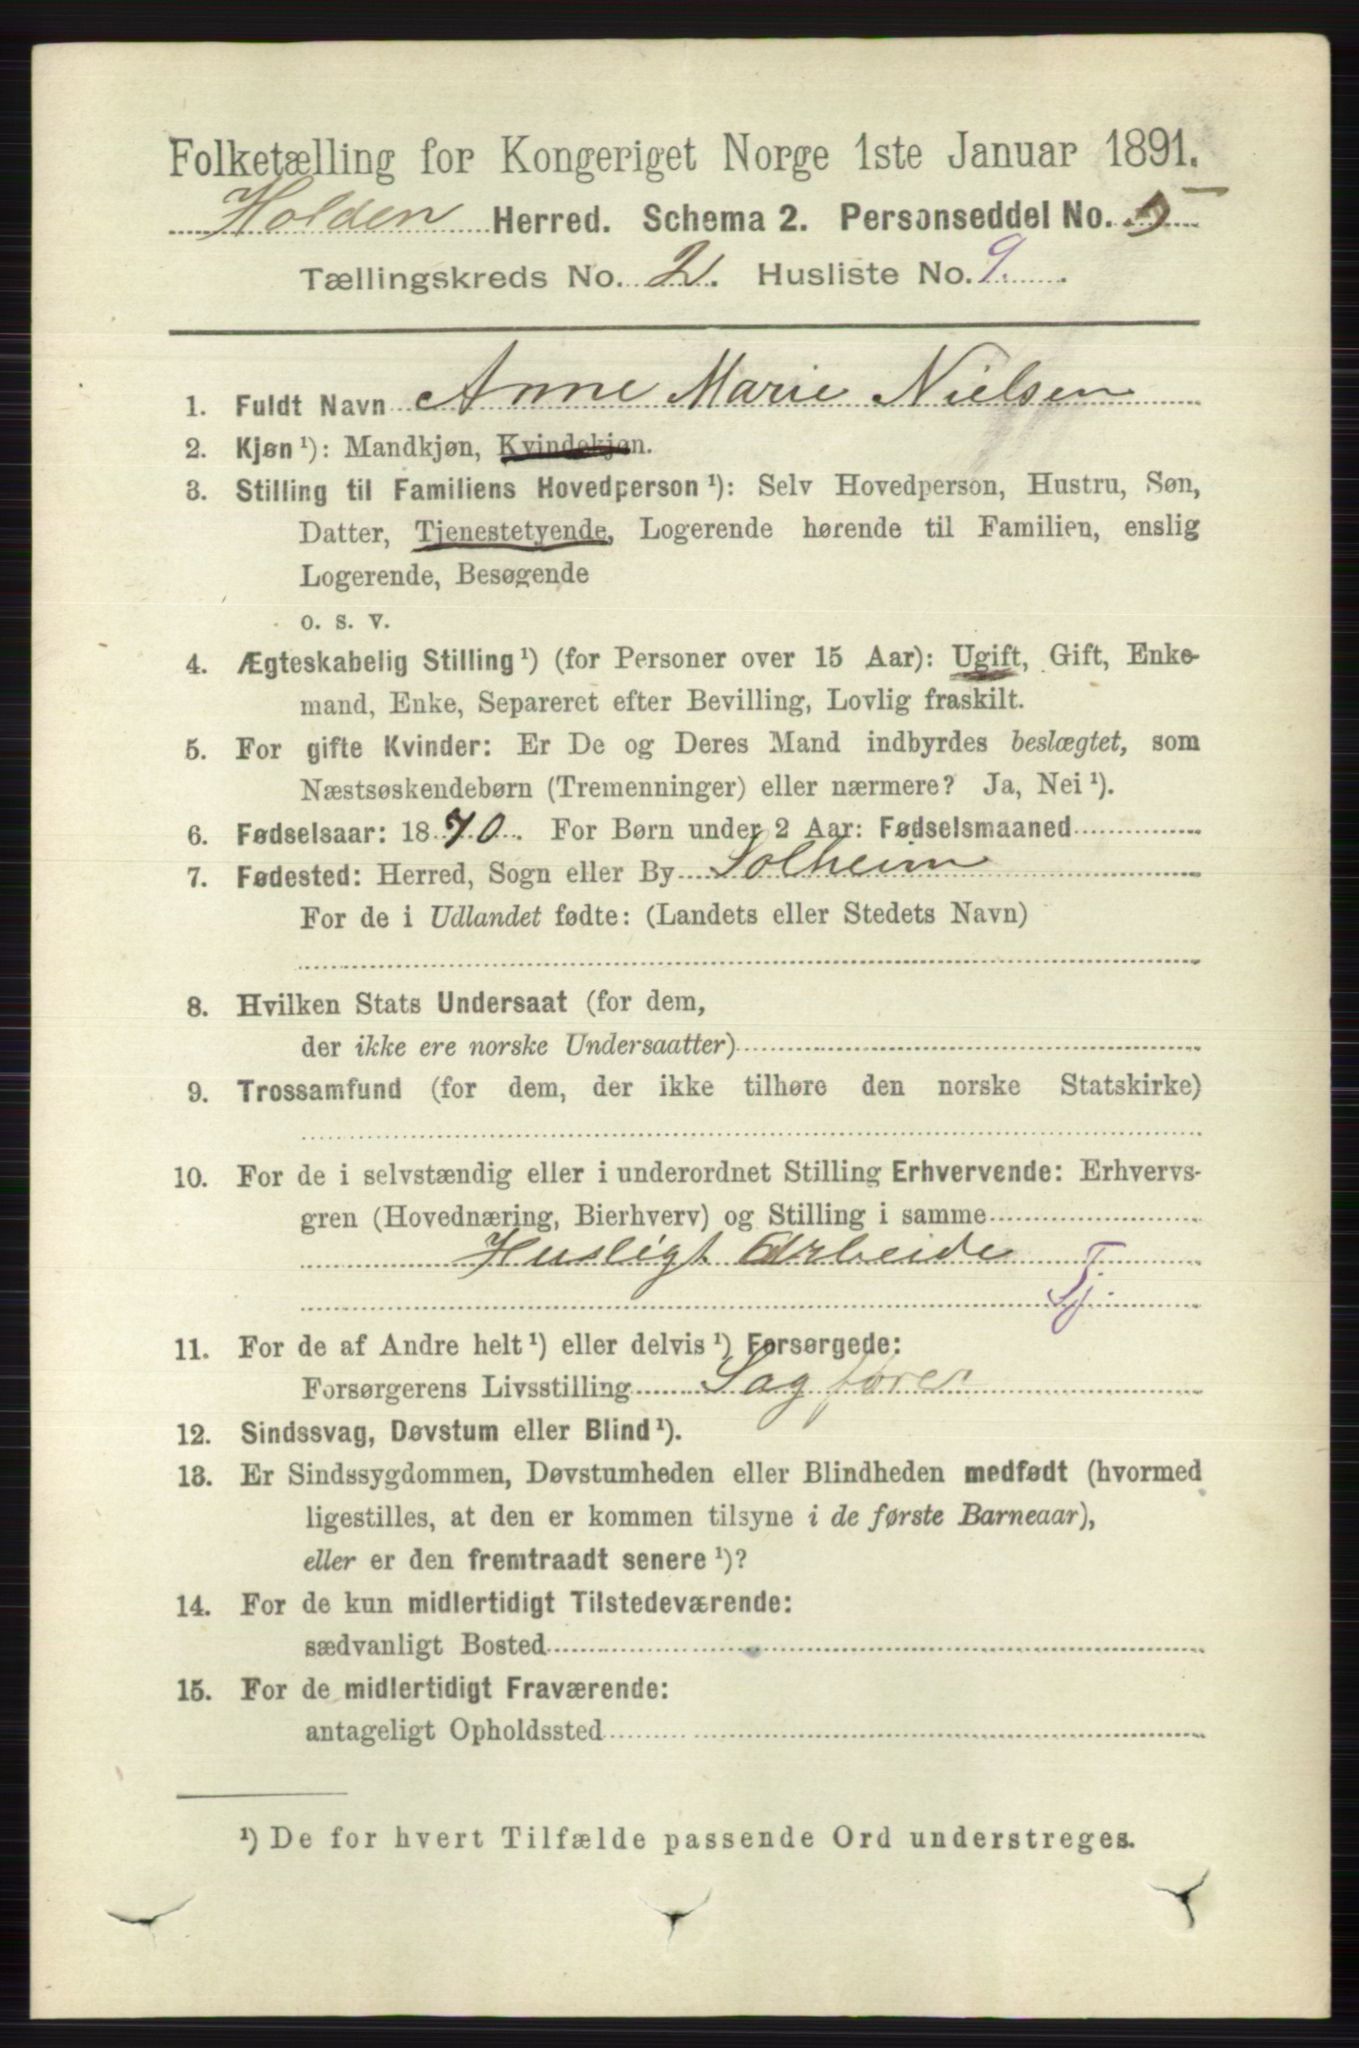 Folketælling for Kongeriget Norge 1ste Januar 1891.
Holden Herred. Schema 2. Personseddel No. 5
Tællingskreds No. 2. Husliste No. 9.
1. Fuldt Navn Anne Marie Nielsen
2. Kjøn¹): Mandkjøn, Kvindekjøn.
3. Stilling til Familiens Hovedperson¹): Selv Hovedperson, Hustru, Søn,
Datter, Tjenestetyende, Logerende hørende til Familien, enslig
Logerende, Besøgende
o. s. v.
4. Ægteskabelig Stilling¹) (for Personer over 15 Aar): Ugift, Gift, Enke-
mand, Enke, Separeret efter Bevilling, Lovlig fraskilt.
5. For gifte Kvinder: Er De og Deres Mand indbyrdes beslægtet, som
Næstsøskendebørn (Tremenninger) eller nærmere? Ja, Nei¹).
6. Fødselsaar: 1870. For Børn under 2 Aar: Fødselsmaaned
7. Fødested: Herred, Sogn eller By Solheim
For de i Udlandet fødte: (Landets eller Stedets Navn)
8. Hvilken Stats Undersaat (for dem,
der ikke ere norske Undersaatter)
9. Trossamfund (for dem, der ikke tilhøre den norske Statskirke)
10. For de i selvstændig eller i underordnet Stilling Erhvervende: Erhvervs-
gren (Hovednæring, Bierhverv) og Stilling i samme
Husligt Arbeide
Tj.
11. For de af Andre helt¹) eller delvis¹) Forsørgede:
Forsørgerens Livsstilling Sagfører
12. Sindssvag, Døvstum eller Blind¹).
13. Er Sindssygdommen, Døvstumheden eller Blindheden medfødt (hvormed
ligestilles, at den er kommen tilsyne i de første Barneaar),
eller er den fremtraadt senere¹)?
14. For de kun midlertidigt Tilstedeværende:
sædvanligt Bosted
15. For de midlertidigt Fraværende:
antageligt Opholdssted
¹) De for hvert Tilfælde passende Ord understreges.